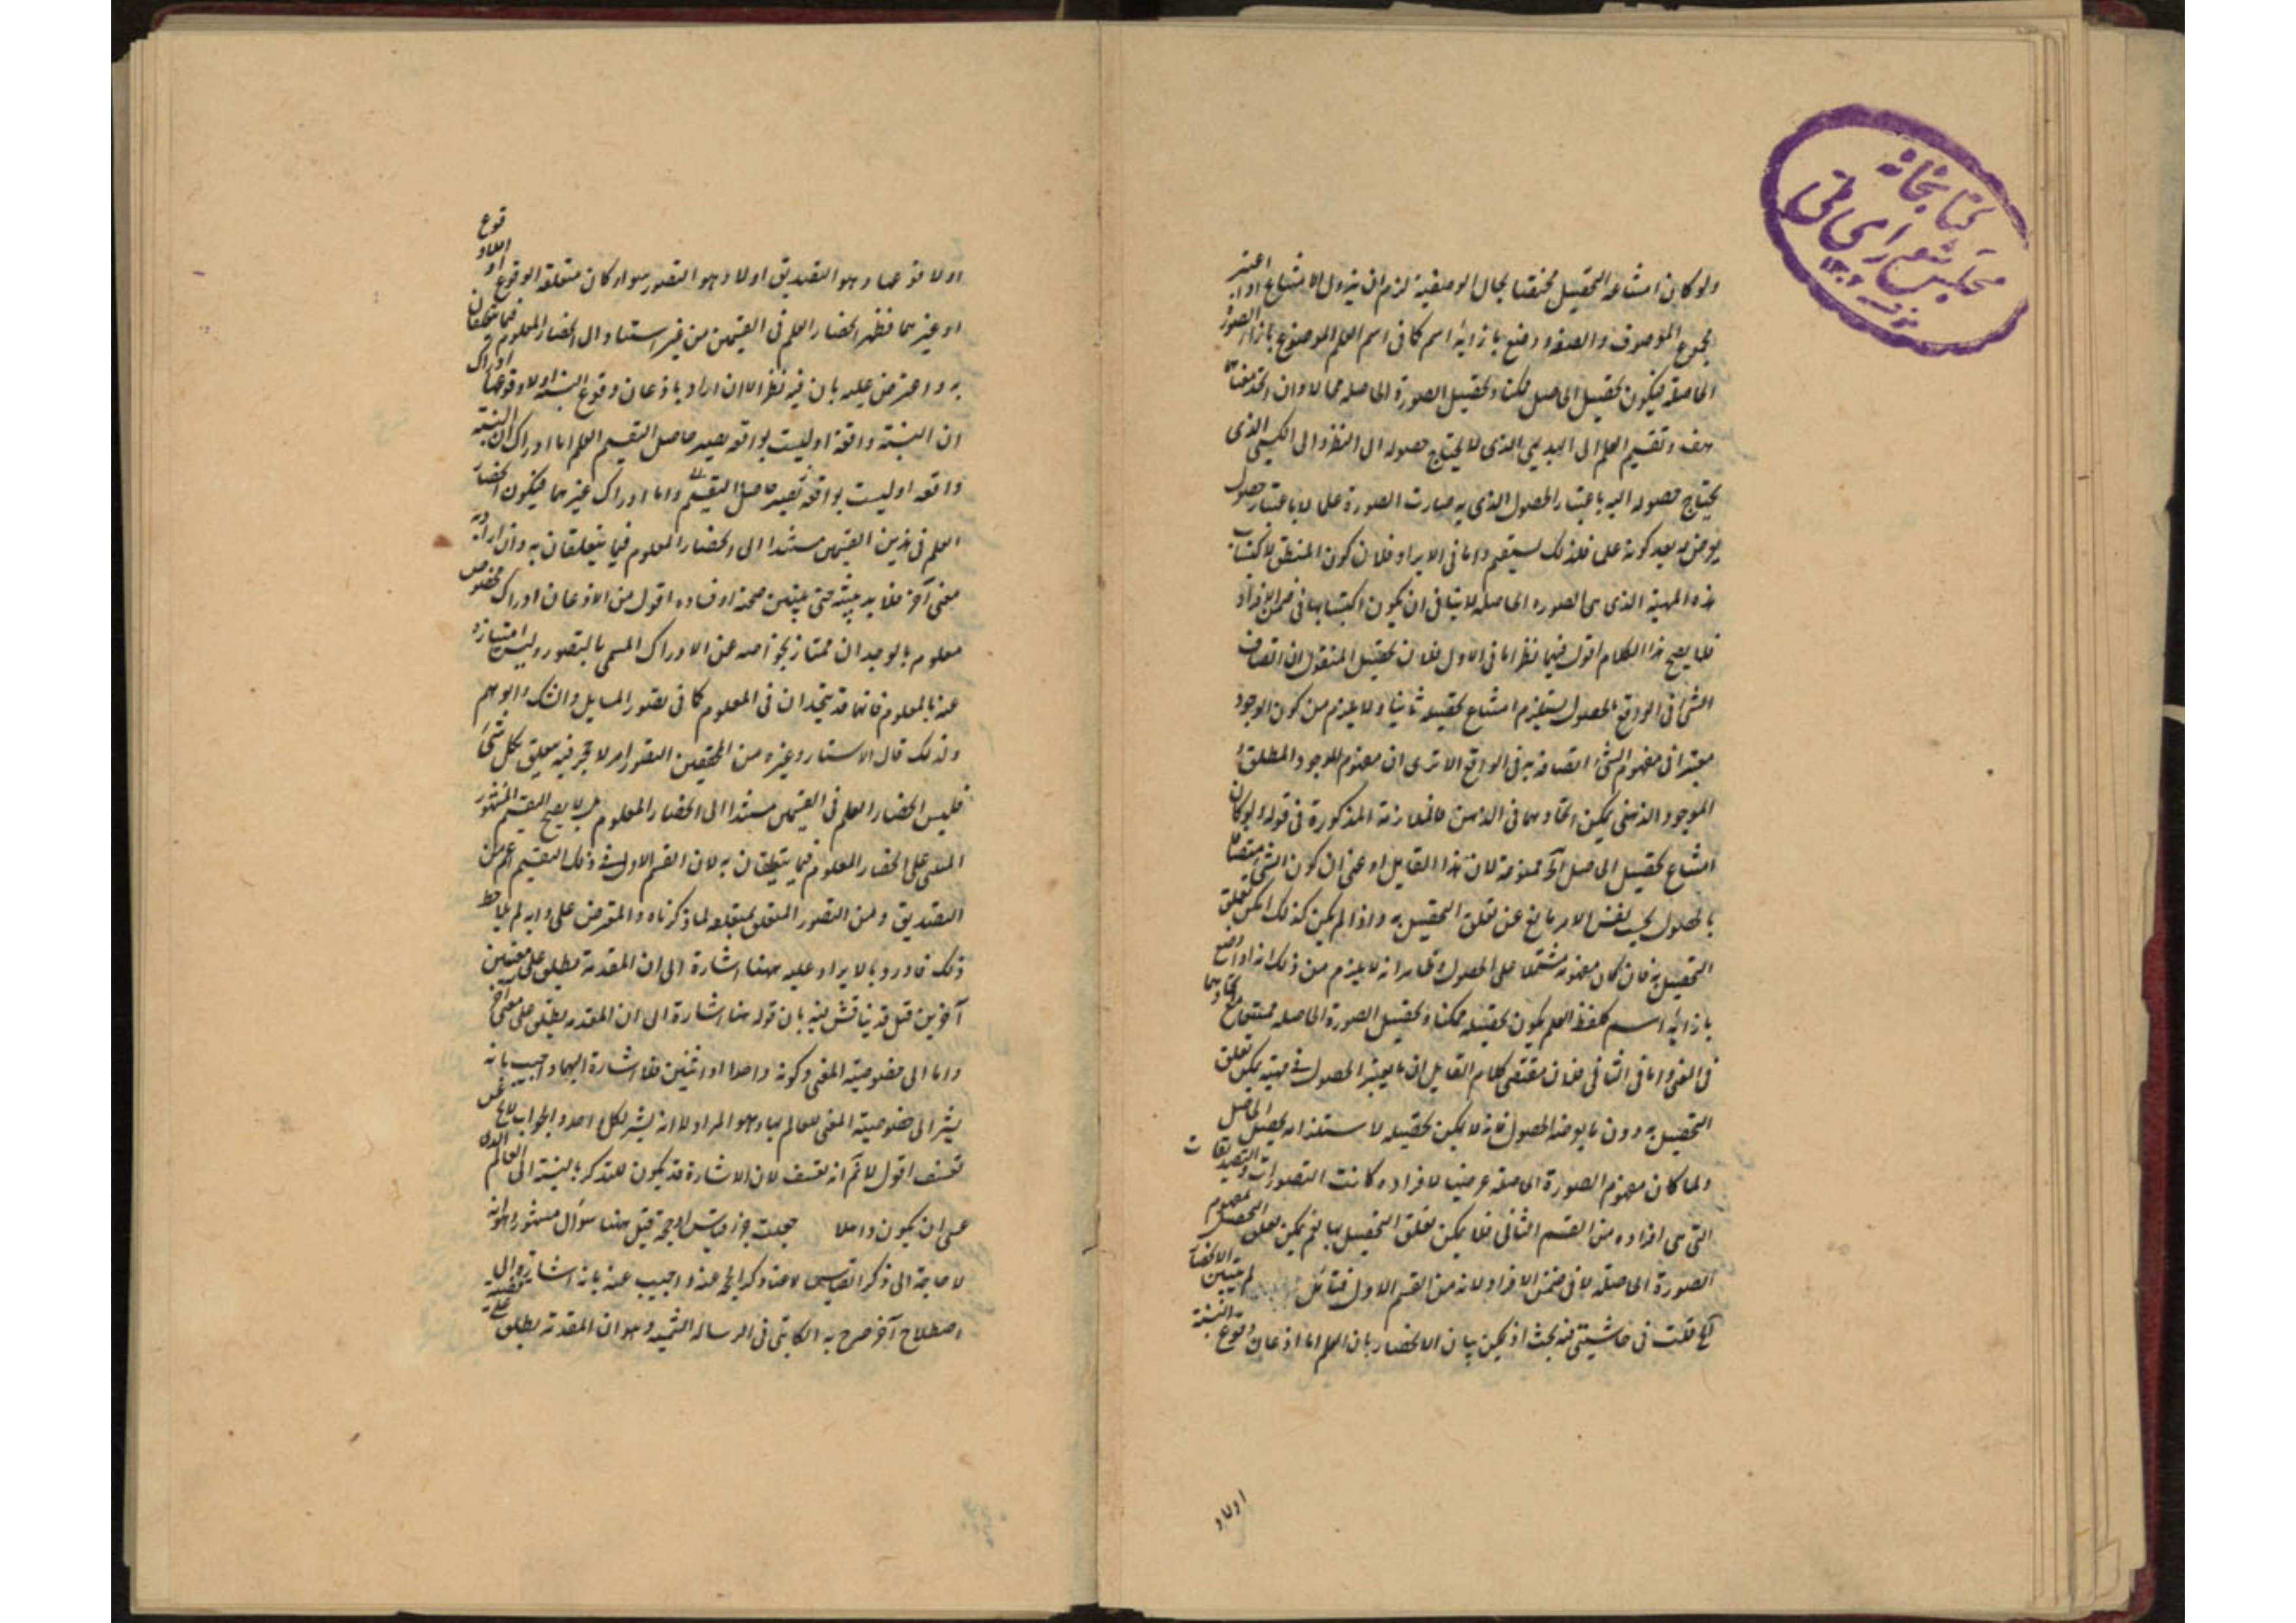 کتابخانه
مجلس شورای ملی
ولو كان امتناع التحصيل مختصا بحال الوصفية لزم ان يزول الامتناع اذا اعتبر
مجموع الموصوف والصفة ووضع بازائه اسم كما فى اسم العلم الموضوع بازاء الصورة
الحاصلة فيكون تحصيل الحاصل ممكنا وتحصيل الصورة الحاصلة محالا وان اتحد معناهما
هف وتقسيم العلم الى البديهى الذى لا يحتاج حصوله الى النظر والى الكسبى الذى
يحتاج حصوله اليه باعتبار الحصول الذى به صارت الصورة علما لا باعتبار حصول
يعرض له بعد كونه علما فلذلك يستقيم واما فى الايراد فلان كون المنطق لاكتساب
هذه المهية الذى هى الصورة الحاصلة لا ينافى ان يكون اكتسابها فى ضمن الافراد
فلا يصح هذا الكلام اقول فيهما نظر اما فى الاول فلان تحصيل المنقول ان اتصاف
الشئ فى الواقع بالحصول يستلزم امتناع تحصيله ثانيا ولا يلزم من كون الوجود
معتبرا فى مفهوم الشئ اتصافه به فى الواقع الا ترى ان مفهوم اللاوجود المطلق
الموجود الذهنى يمكن اتحادهما فى الذهن فالملازمة المذكورة فى قوله ولو كان
امتناع تحصيل الحاصل الخ ممنوعة لان هذا القايل ادعى ان كون الشئ متصفا
بالحصول بحسب نفس الامر مانع عن تعلق التحصيل به واذا لم يكن كذلك امكن تعلق
التحصيل به فان كان مفهومه مشتملا على الحصول وظاهر انه لا يلزم من ذلك انه اذا وضع
بازائه اسم كلفظ العلم يكون تحصيله ممكنا وتحصيل الصورة الحاصلة ممتنعا مع اتحادهما
فى المعنى واما فى الثانى فلان مقتضى كلام القايل ان ما يعتبر الحصول فى مهيته يمكن تعلق
التحصيل به دون ما يعرضه الحصول فانه لا يمكن تحصيله لاستلزامه تحصيل الحاصل
ولما كان مفهوم الصورة الحاصلة عرضيا لافراده كانت التصورات والتصديقات
التى هى افراده من القسم الثانى فلا يمكن تعلق التحصيل بها نعم يمكن تعلق التحصيل بمفهوم
الصورة الحاصلة لا فى ضمن الافراد لانه من القسم الاول فتأمل لم يتبين الانحصار
الخ قلت فى حاشيتى فيه بحث اذ يمكن بيان الانحصار بان العلم اما اذعان وقوع النسبة
اولا و
اولا وقوعها وهو التصديق اولا وهو التصور سواء كان متعلقه الوقوع او اللاوقوع
او غيرهما فظهر انحصار العلم فى القسمين من غير استناد الى انحصار المعلوم فيما يتعلقان
به واعترض عليه بان فيه نظر الا ان اراد باذعان وقوع النسبة اولا وقوعها ادراك
ان النسبة واقعة او ليست بواقعة يصير حاصل التقسيم العلم اما ادراك ان النسبة
واقعة او ليست بواقعة يصير حاصل التقسيم واما ادراك غيرهما فيكون انحصار
العلم فى هذين القسمين مستندا الى انحصار المعلوم فيما يتعلقان به وان اراد به
معنى آخر فلا بد من بيانه حتى يتبين صحته او فساده اقول من الاذعان ادراك مخصوص
معلوم بالوجدان ممتاز بنحو آخر عن الادراك المسمى بالتصور وليس امتيازه
عنه بالمعلوم فانهما قد يتحدان فى المعلوم كما فى تصور المسايل والشك والوهم
ولذلك قال الاستاد وغيره من المحققين التصور امر لا حجر فيه يتعلق بكل شئ
فليس انحصار العلم فى القسمين مستندا الى انحصار المعلوم بل لا يصح التقسيم المشهور
المبنى على انحصار المعلوم فيما يتعلقان به لان القسم الاول فى ذلك التقسيم اعم من
التصديق ومن التصور المتعلق بمتعلقه لما ذكرناه والمتعرض على دابه لم يلاحظ
ذلك فاورد بالايراد عليه ههنا اشارة الى ان المقدمة يطلق على معنيين
آخرين قيل قد يناقش فيه بان قوله هنا اشارة الى ان المقدمة يطلق على معنى آخر
واما الى خصوصية المعنى وكونه واحدا او اثنين فلا اشارة اليهما واجيب بانه
يشير الى خصوصية المعنى للعالم بها وهو المراد لا انه يشير لكل احد والجواب لا يخ عن
تعسف اقول لا نم انه تعسف لان الاشارة قد يكون للتذكر بالنسبة الى العالم الذى
عسى ان يكون ذاهلا جعلت جزء قياس او حجة قيل ههنا سؤال مشهور وهو انه
لا حاجة الى ذكر القياس لاغناء ذكر الحجة عنه واجيب عنه بانه اشارة الى
اصطلاح آخر صرح به الكاتبى فى الرسالة الشمسية وهو ان المقدمة يطلق على قضية